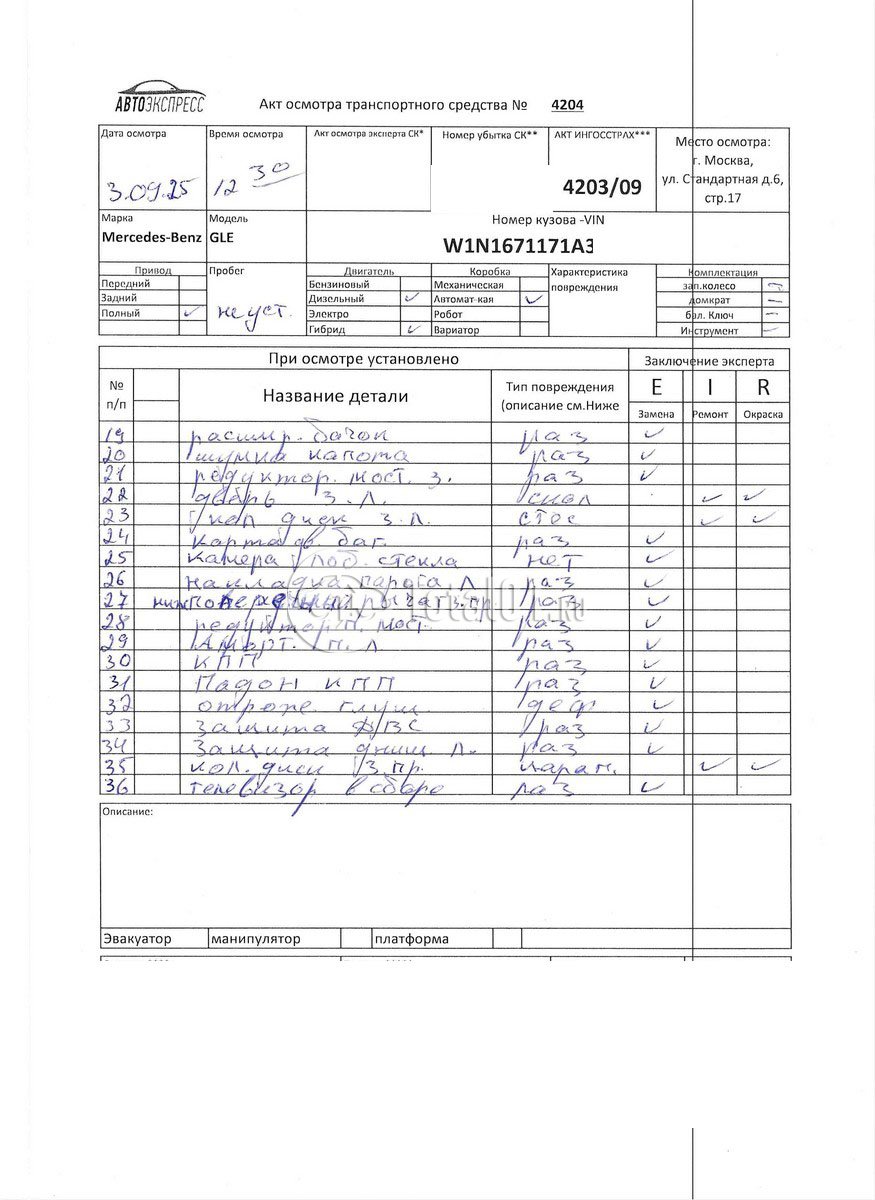 АВТОЭКСПРЕСС
Акт осмотра транспортного средства № 4204
Дата осмотра Время осмотра Акт осмотра эксперта СК* Номер убытка СК** АКТ ИНГОССТРАХ*** Место осмотра:
г. Москва,
3.09.25 12 30 4203/09 ул. Стандартная д.6,
стр.17
Марка Модель Номер кузова -VIN
Mercedes-Benz GLE W1N1671171A3
Привод Пробег Двигатель Коробка Характеристика Комплектация
Передний Бензиновый Механическая повреждения зап.колесо
Задний Дизельный Автомат-кая домкрат
Полный не уст. Электро Робот бал. Ключ
Гибрид Вариатор Инструмент
При осмотре установлено Заключение эксперта
№ Название детали Тип повреждения E I R
п/п (описание см.Ниже Замена Ремонт Окраска
19 расшир. бачок раз
20 шумка капота раз
21 редуктор. мост. з. раз
22 дверь З.Л. скол
23 кол диск З.Л. стос
24 карта дв. баг. раз
25 Камера лоб. стекла нет
26 накладка парога Л раз
27 ниж поперечный рычаг з.пр раз
28 редуктор п. мост. раз
29 Аморт. п. л раз
30 КПП раз
31 Падон КПП раз
32 деф
33 Защита ДВС раз
34 Защита днищ Л. раз
35 кол. диск З.пр. царап.
36 телевизор в сборе раз
Total01.ru
Описание:
Эвакуатор манипулятор платформа